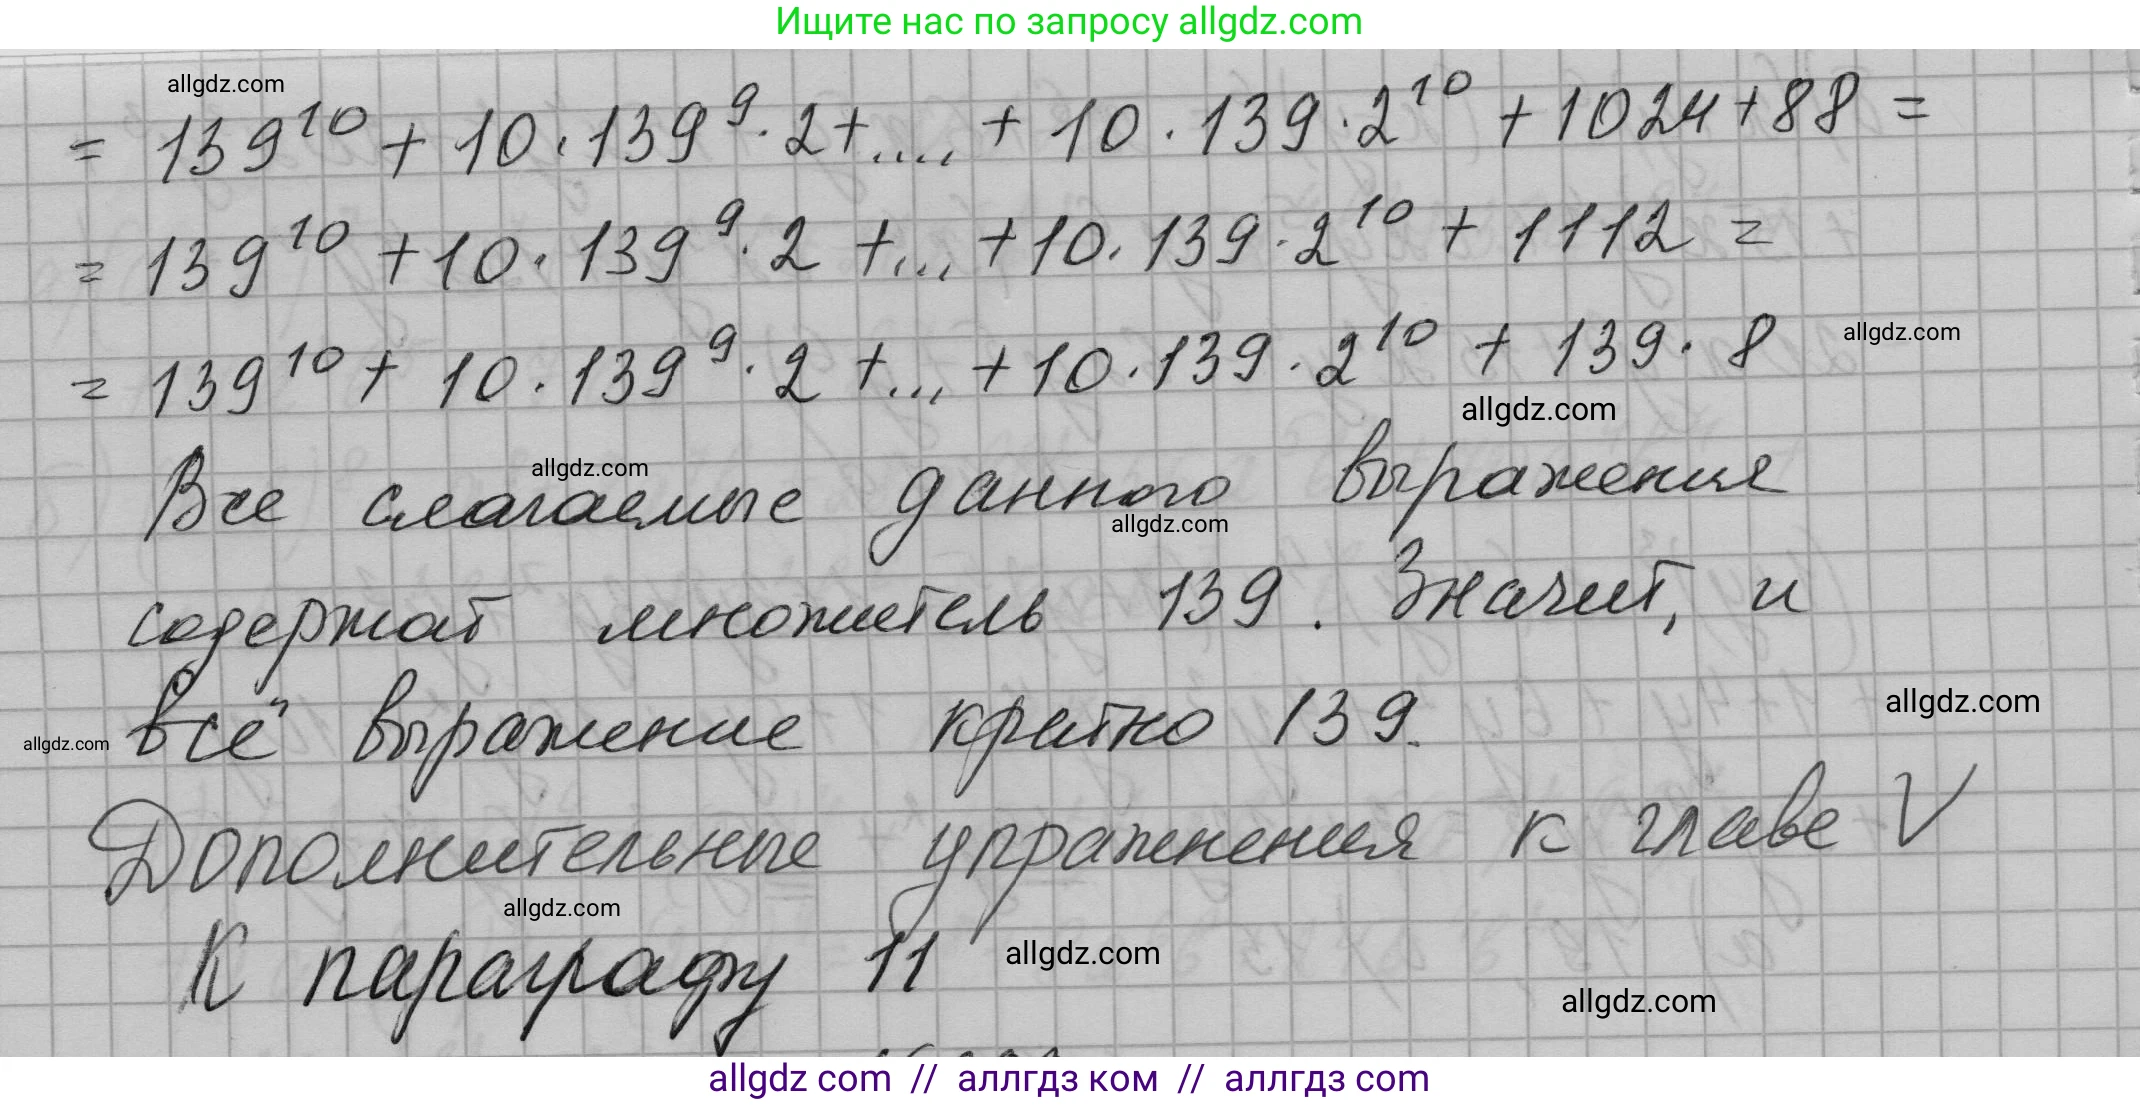 Ищите нас по запросу allgdz.com
allgdz.com
= 139¹⁰ + 10 · 139⁹ · 2 + .... + 10 · 139 · 2¹⁰ + 1024 + 88 =
= 139¹⁰ + 10 · 139⁹ · 2 + ... + 10 · 139 · 2¹⁰ + 1112 =
= 139¹⁰ + 10 · 139⁹ · 2 + ... + 10 · 139 · 2¹⁰ + 139 · 8
allgdz.com
allgdz.com
allgdz.com
Все слагаемые данного выражения
allgdz.com
содержат множитель 139. Значит, и
allgdz.com
всё выражение кратно 139.
allgdz.com
Дополнительные упражнения к главе V
allgdz.com
К параграфу 11
allgdz.com
allgdz.com
allgdz com // аллгдз ком // аллгдз com